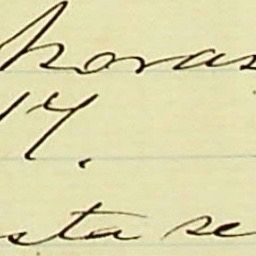 horas
17.
sta se